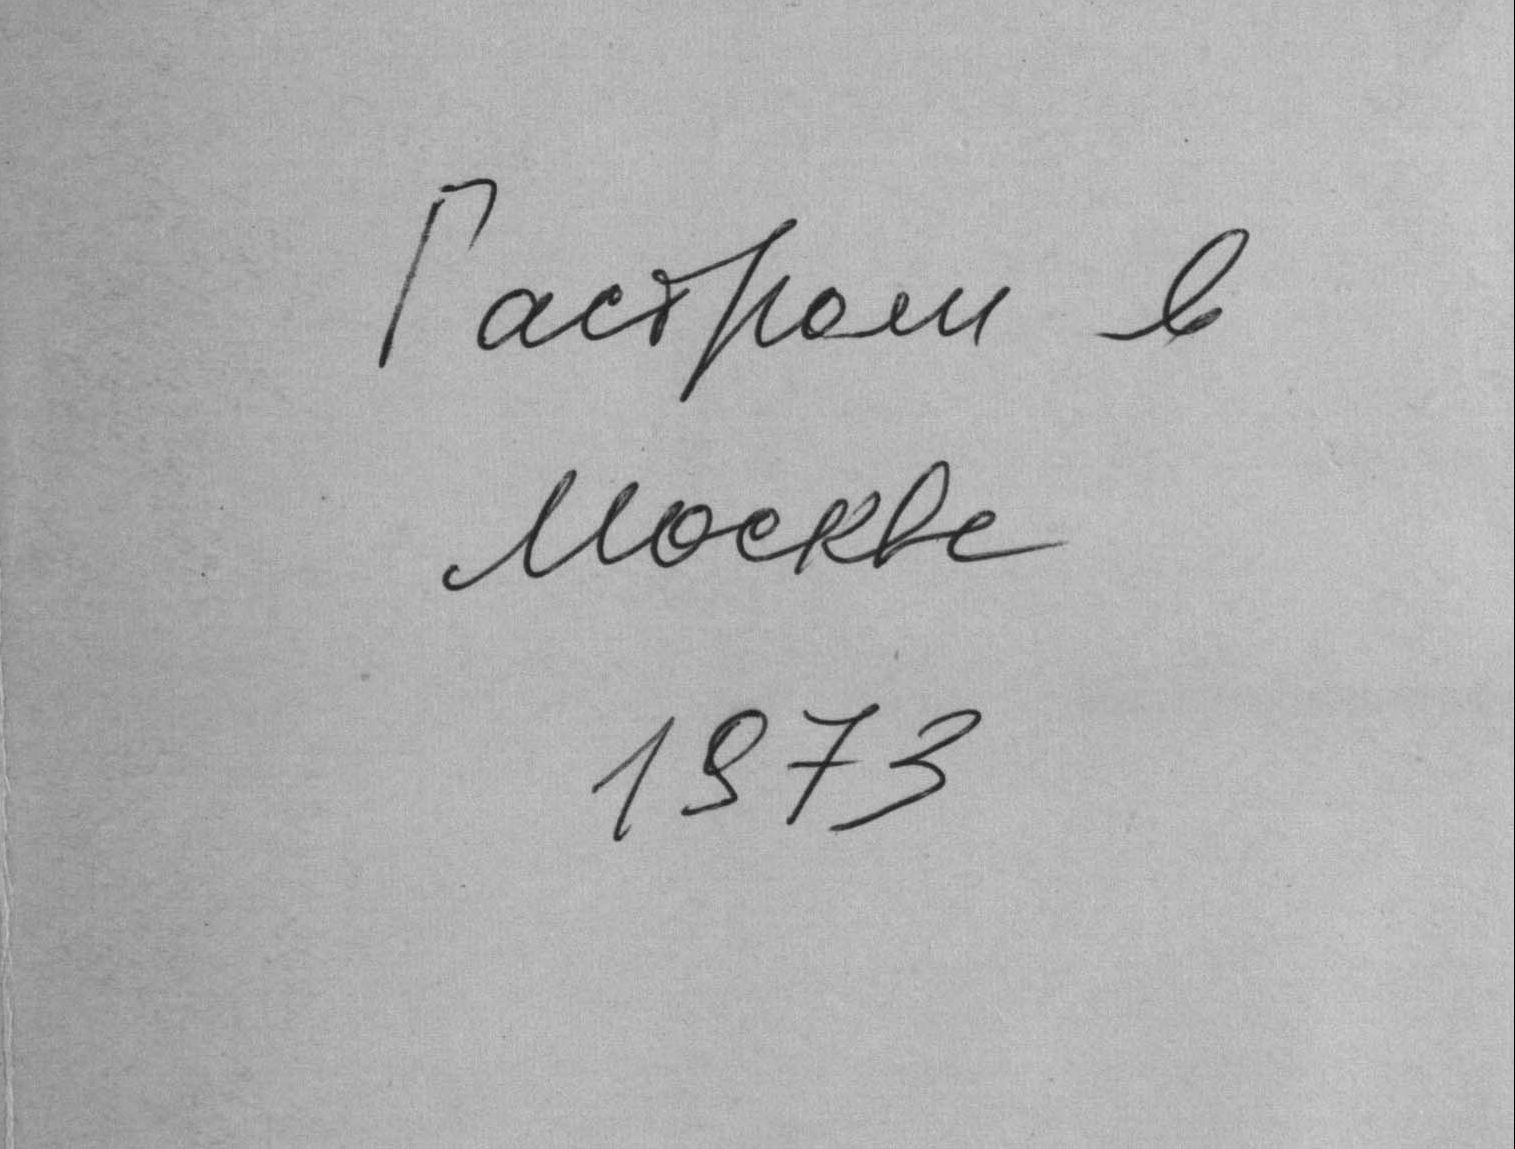 Гастроли в
Москве
1973